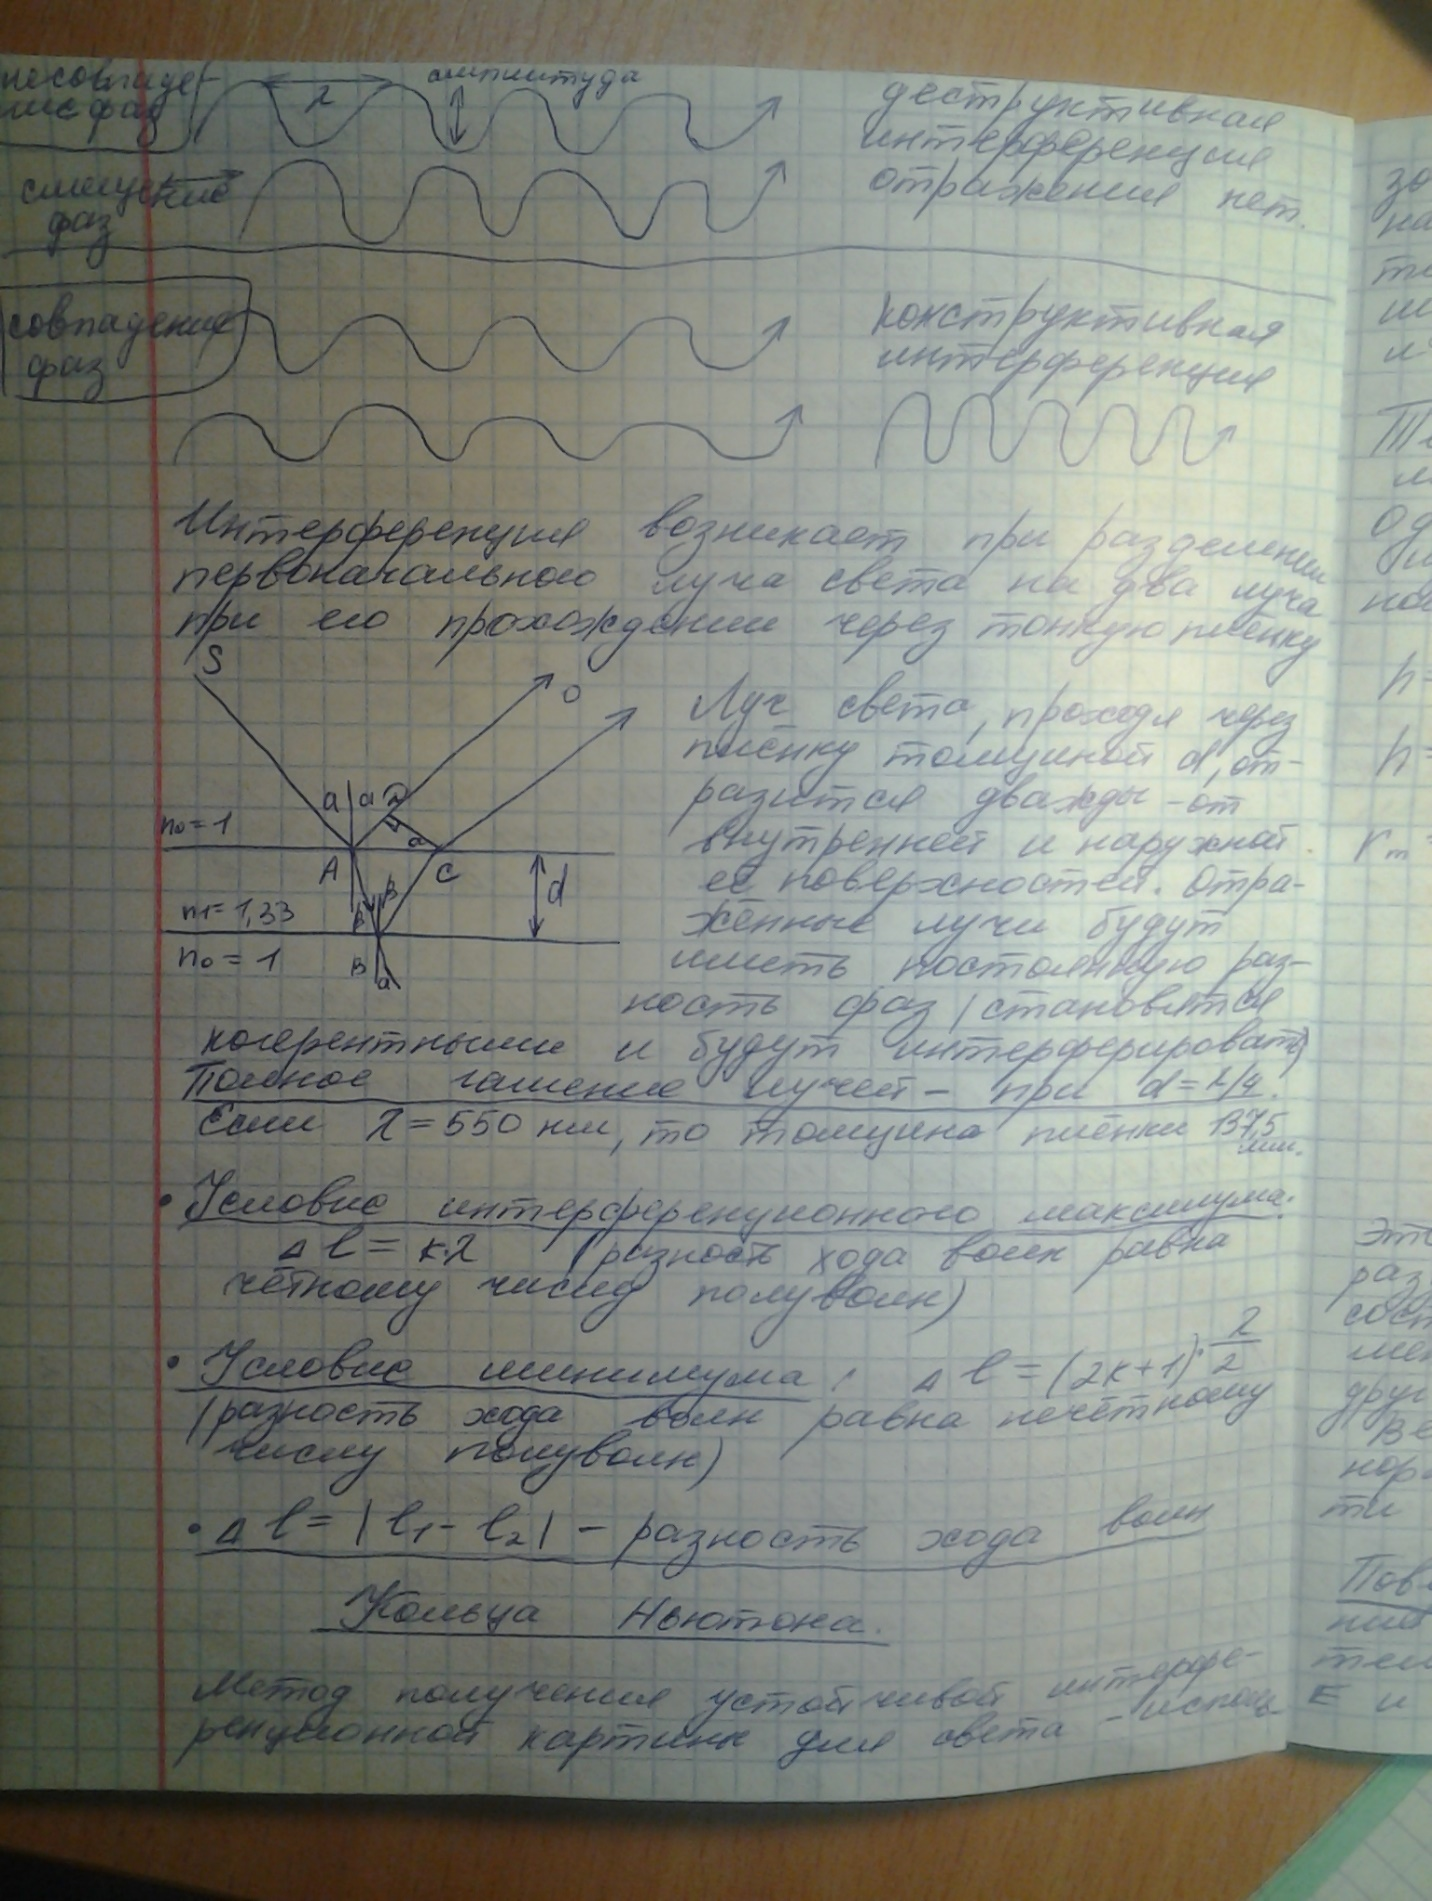 несовпаде-
ние фаз
амплитуда
λ
деструктивная
интерференция
отражения нет.
смещение
фаз
совпадение
фаз
конструктивная
интерференция
Интерференция возникает при разделении
первоначального луча света на два луча
при его прохождении через тонкую плёнку
S
O
a a D
n₀ = 1
a
A C
β
n₁ = 1,33
β
d
n₀ = 1
B
a
Луч света, проходя через
плёнку толщиной d, от-
разится дважды - от
внутренней и наружной
её поверхностей. Отра-
жённые лучи будут
иметь постоянную раз-
ность фаз (становятся
когерентными и будут интерферировать)
Полное гашение лучей - при d = λ/4.
Если λ = 550 нм, то толщина плёнки 137,5
нм.
• Условие интерференционного максимума:
Δl = k·λ (разность хода волн равна
чётному числу полуволн)
• Условие минимума: Δl = (2k+1)·λ/2
(разность хода волн равна нечётному
числу полуволн)
• Δl = |l₁ - l₂| - разность хода волн
Кольца Ньютона.
Метод получения устойчивой интерфе-
ренционной картины для света - исполь-
зо
на
h =
h =
rₘ =
это
раз
сост
друг
ти
Пов
E и